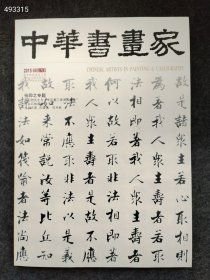 493315
中華書畫家
CHINESE ARTISTS IN PAINTING & CALLIGRAPHY
故是諸眾生若心取相則
為著我人眾生壽者若取
法相即著我人眾生壽者
何以故若取非法相即著
我人眾生壽者是故不應
取法不應取非法以是義
故如來常說汝等比丘知
我說法如筏喻者法尚應